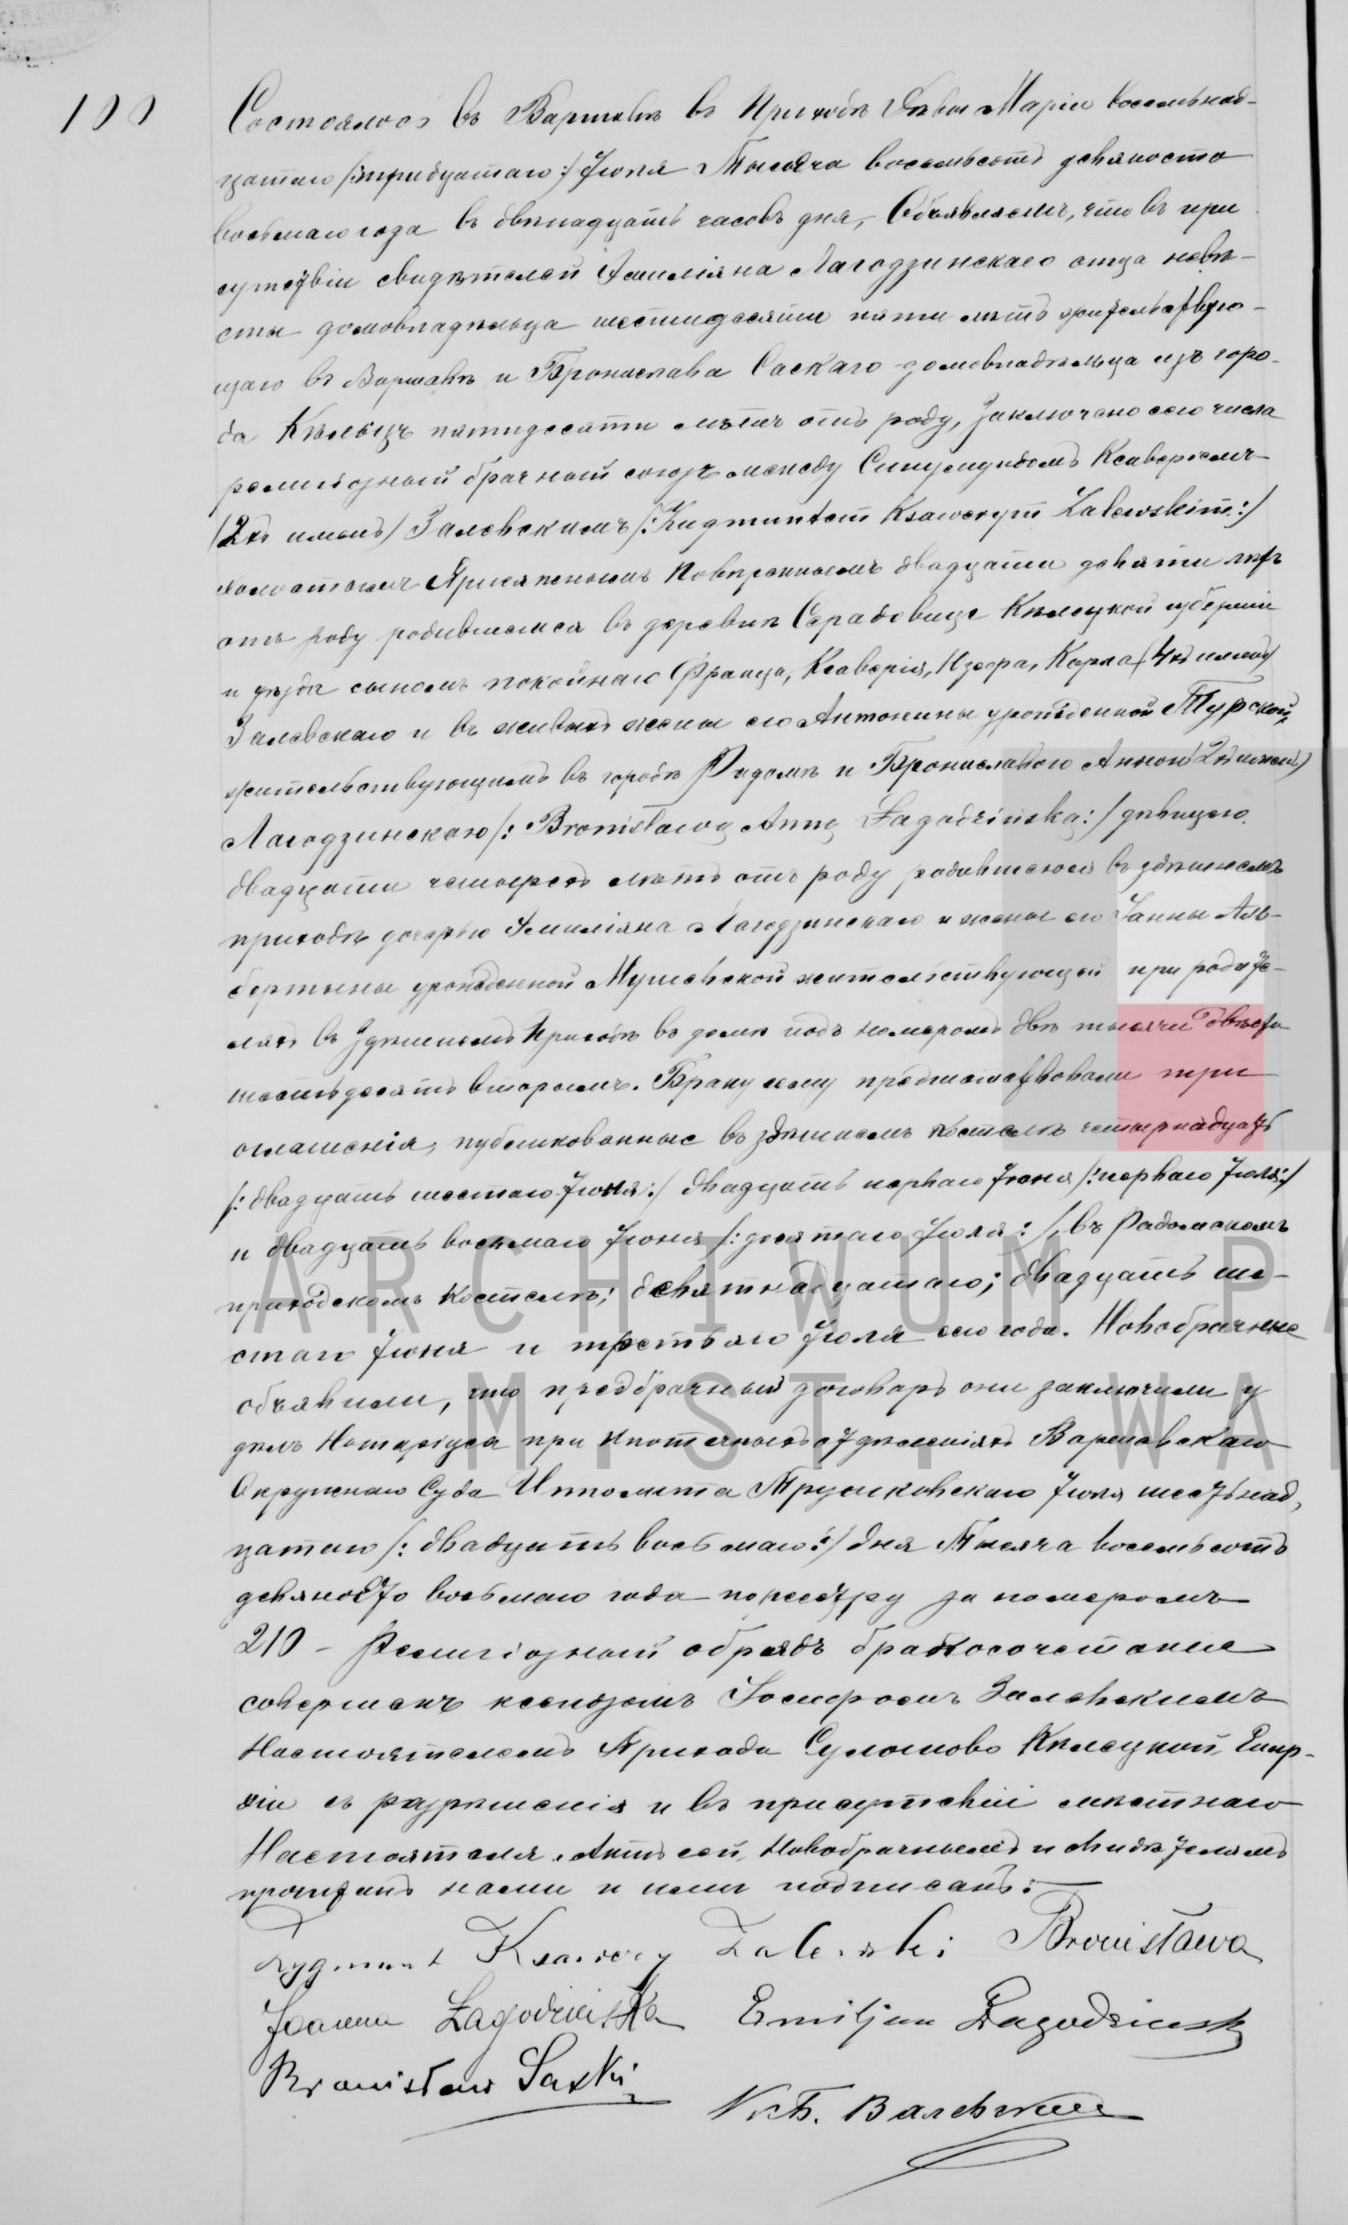 100
Состоялось въ Варшавѣ въ Приходѣ Дѣвы Маріи восемнад-
цатаго /:тридцатаго:/ Іюля Тысяча восемьсотъ девяносто
восьмаго года въ двѣнадцать часовъ дня, Объявляемъ, что въ при
сутствіи свидѣтелей Эмиліяна Лагодзинскаго отца невѣ-
сты домовладѣльца шестидесяти пяти лѣтъ жительствую-
щаго въ Варшавѣ и Бронислава Саскаго домовладѣльца изъ горо-
да Кѣльцъ пятидесяти лѣтъ отъ роду, Заключено сего числа
религіозный брачный союзъ между Сигизмундомъ Ксаверіемъ
/2хъ именъ/ Залевскимъ /:Zygmuntem Ksawerym Zalewskim:/
холостымъ Присяжнымъ Повѣреннымъ двадцати девяти лѣтъ
отъ роду родившемся въ деревнѣ Кѣлецкой губерніи
и уѣзда сыномъ покойнаго Франца, Ксаверія, Іезефа, Карла /4хъ именъ/
Залевскаго и въ живыхъ жены его Антонины урожденной Турской,
жительствующимъ въ городѣ Радомѣ и Брониславою Анною /2хъ именъ/
Лагодзинскою /: Bronisławą Anną Łagodzińską:/ дѣвицею
двадцати четырехъ лѣтъ отъ роду родившеюся въ здѣшнемъ
приходѣ дочерью Эмиліяна Лагодзинскаго и жены его Іанны Аль-
бертыны урожденной жительствующей при родите-
ляхъ въ Здѣшнемъ Приходѣ въ домѣ подъ номеромъ двѣ тысячи двѣсти
шестьдесятъ вторымъ. Браку сему предшествовали три
оглашенія, публикованные въ здѣшнемъ костелѣ четырнадцать
/: двадцать шестаго Іюня:/ двадцать перваго Іюня /:перваго Іюля:/
и двадцать восьмаго Іюня /:десятаго Іюля:/, въ Радомскомъ
приходскомъ Костелѣ; девятнадцатаго; двадцать ше-
стаго Іюня и третьяго Іюля сего года. Новобрачные
объявили, что предбрачный договоръ они заключили у
дѣлъ Нотаріуса при Ипотечныхъ отдѣленіяхъ Варшавскаго
Окружнаго Суда Ипполита Трушковскаго Іюля шестнад,
цатаго /: двадцать восьмаго:/ дня Тысяча восемьсотъ
девяносто восьмаго года по реестру за номеромъ
210 - Религіозный обрядъ бракосочетанія
совершенъ ксендзомъ Іосифомъ Залевскимъ
Настоятелемъ Прихода Сулошово Кѣлецкой Епар-
хіи съ разрѣшенія и въ присутствіи мѣстнаго
Настоятеля. Актъ сей, Новобрачнымъ и свидѣтелямъ
прочитанъ нами и ими подписанъ:
Zygmunt Ksawery Zalewski Bronisława
Joanna Łagodzińska Emiljan Łagodziński
Bronisław Saski
ARCHIWUM PA
M ST WA